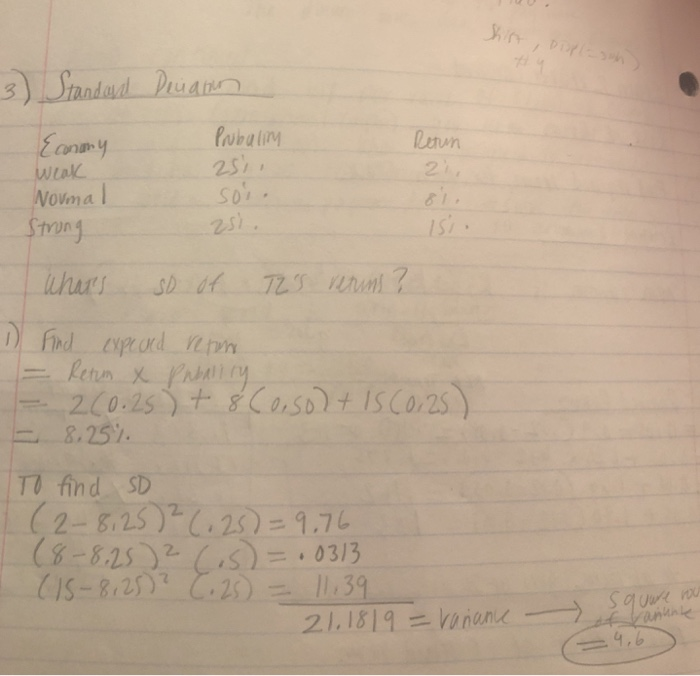 3) Standard Deviation
Economy Probability Return
Weak 25%. 2%.
Normal 50%. 8%.
Strong 25%. 15%.
What's SD of TZ's returns?
1) Find expected return
= Return x Probability
= 2(0.25) + 8(0.50) + 15(0.25)
= 8.25%.
To find SD
(2-8.25)² (.25) = 9.76
(8-8.25)² (.5) = .0313
(15-8.25)² (.25) = 11.39
21.1819 = Variance → square root
of variance
= 4.6